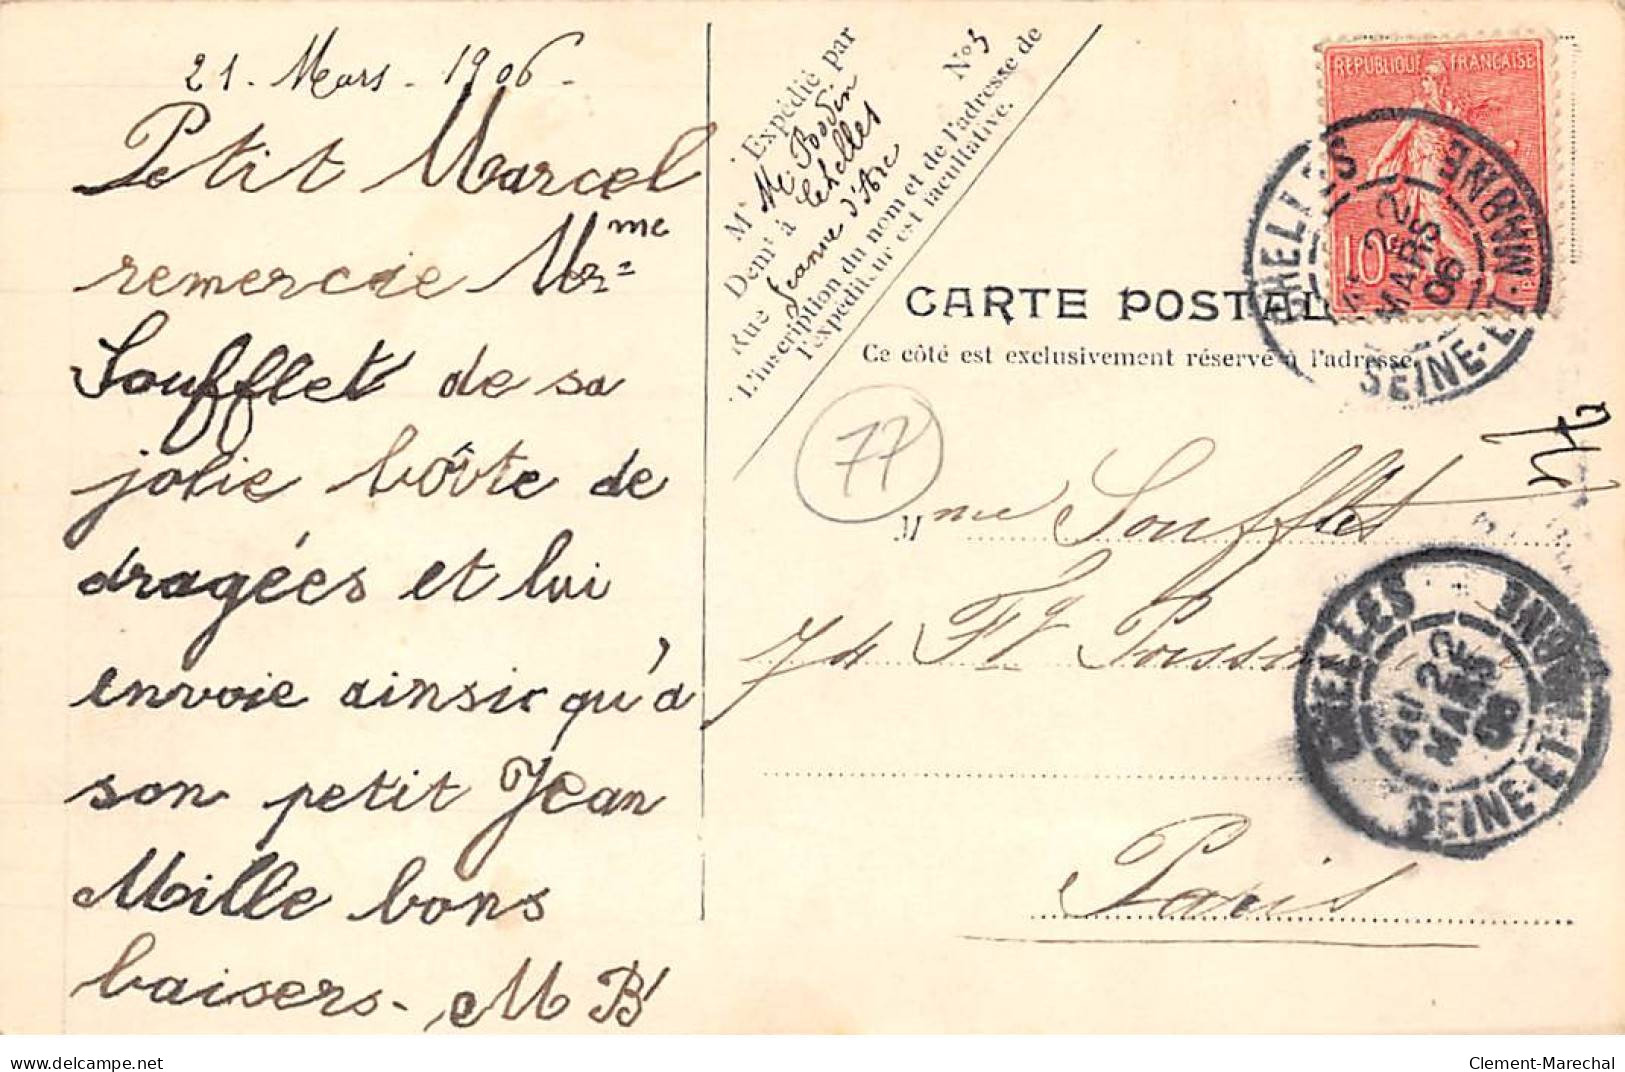 21. Mars. 1906.
Petit Marcel
remercie Mme
Mr=
Soufflet de sa
jolie boîte de
dragées et lui
envoie ainsi qu'à
son petit Jean
Mille bons
baisers. M B
Expédié par
Mr Me Bodin
Demt à Chelles
Rue Jeanne d'Arc
No 3
L'inscription du nom et de l'adresse de
l'expéditeur est facultative.
REPUBLIQUE FRANÇAISE
10c
CHELLES
22
MARS
06
SEINE-ET-MARNE
CARTE POSTALE
Ce côté est exclusivement réservé à l'adresse
77
Mme Soufflet
74 Fg
Paris
CHELLES
22
MARS
06
SEINE-ET-MARNE
delcampe.net
Clement-Marechal